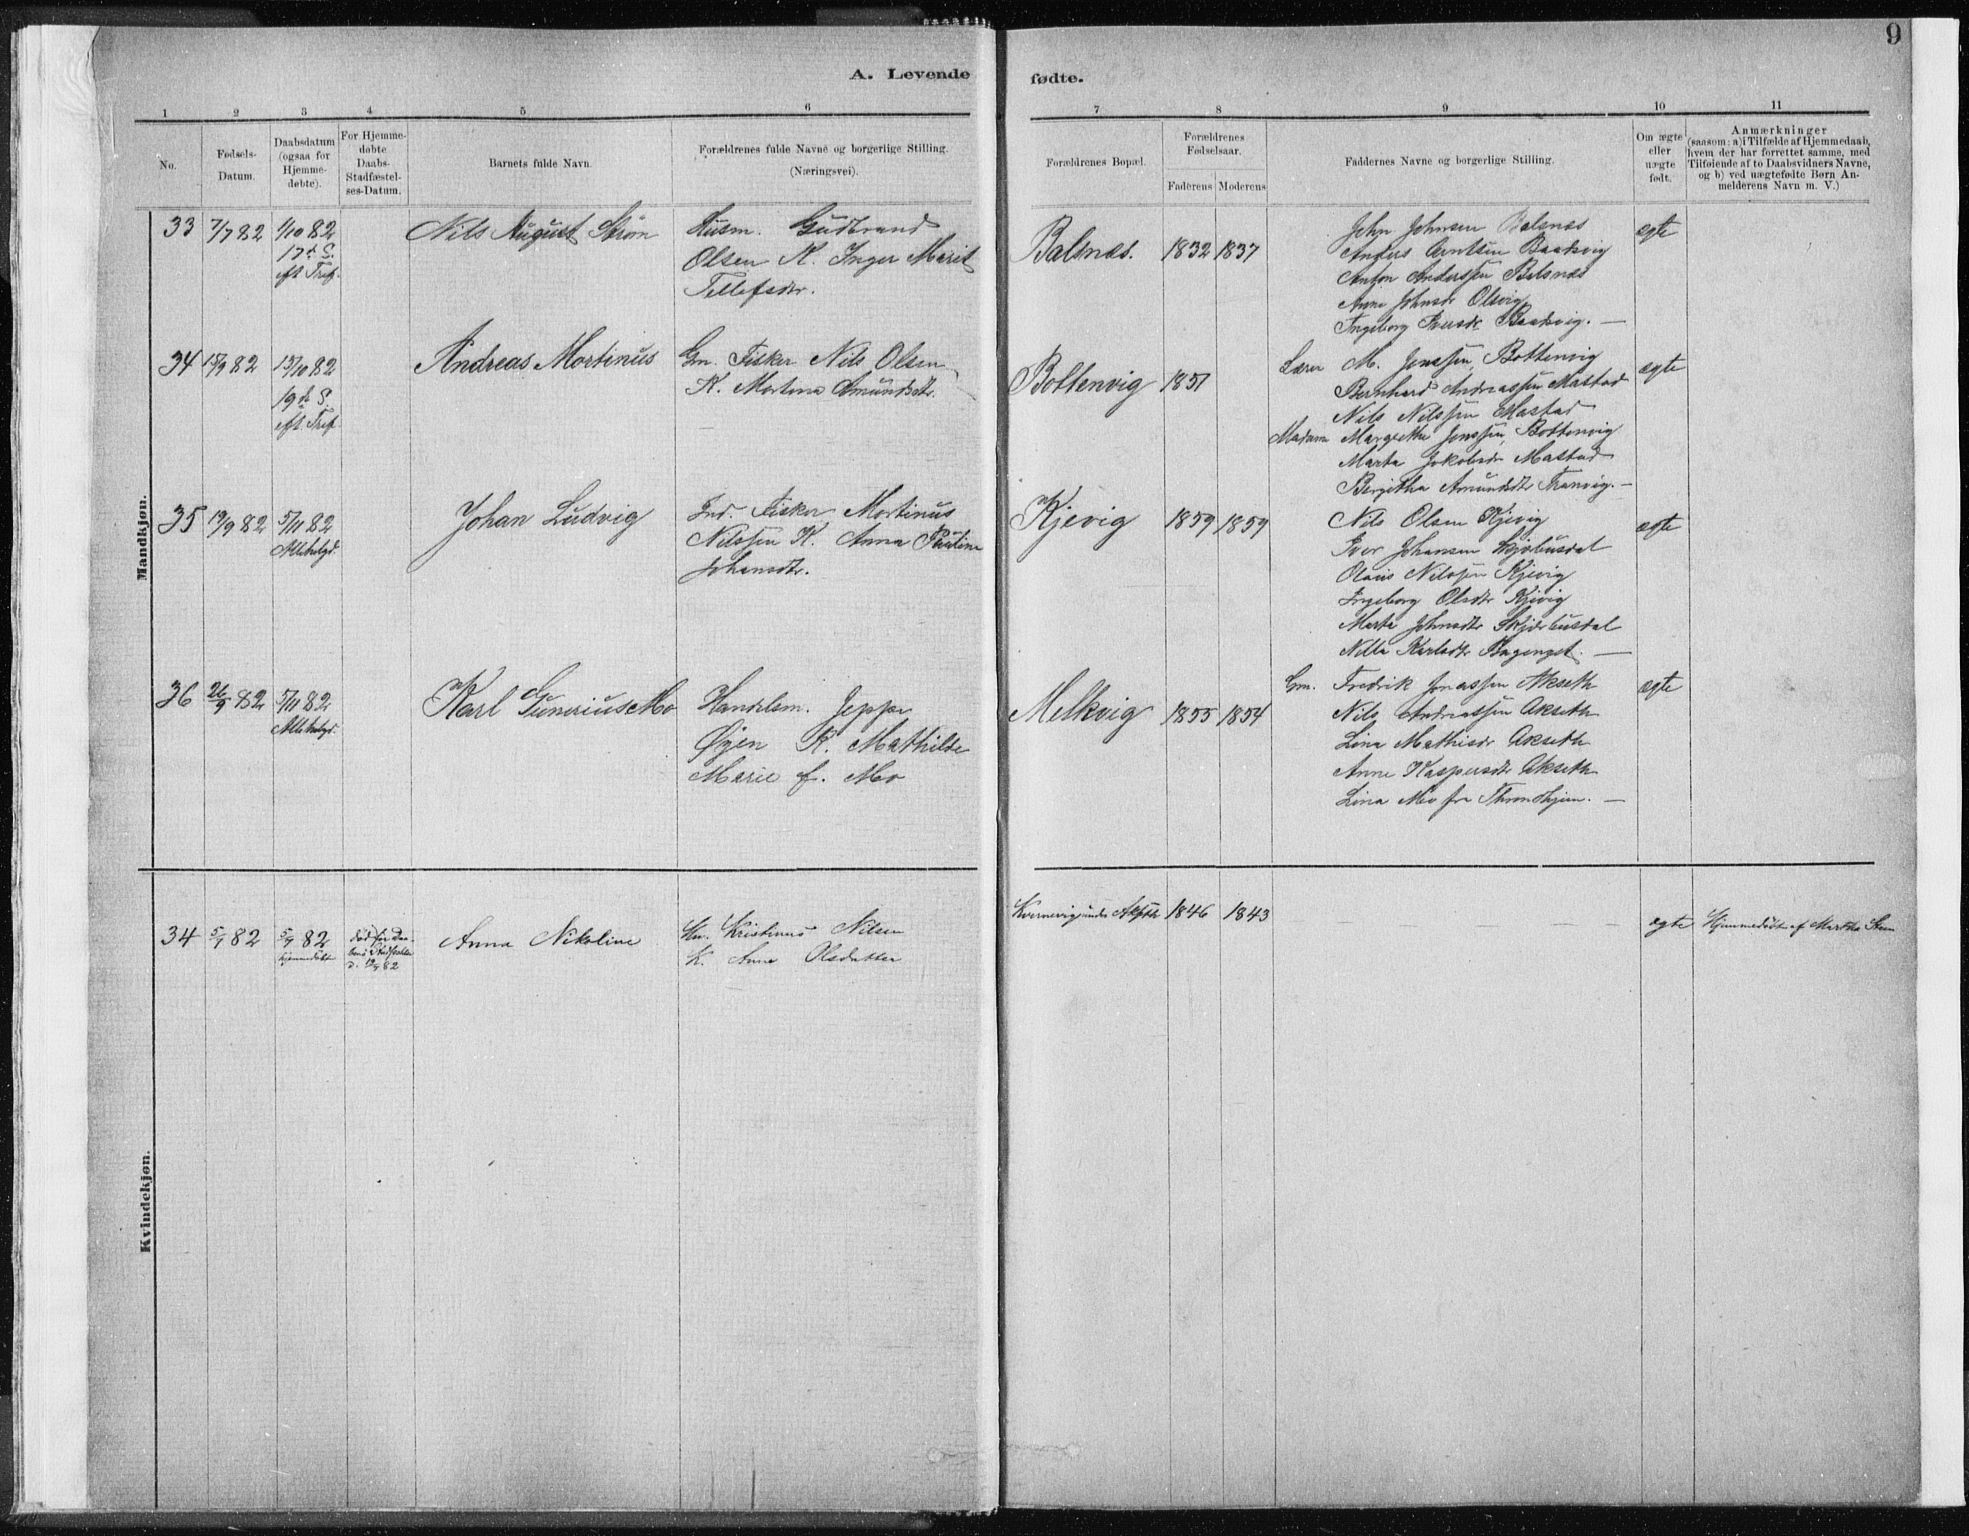 9
A. Levende fødte.
1 2 3 4 5 6 7 8 9 10 11
No.
Fødsels-
Datum.
Daabsdatum
(ogsaa for
Hjemme-
døbte).
For Hjemme-
døbte
Daabs-
Stadfæstel-
ses-Datum.
Barnets fulde Navn.
Forældrenes fulde Navne og borgerlige Stilling.
(Næringsvei).
Forældrenes Bopæl.
Forældrenes
Fødselsaar.
Faderens Moderens
Faddernes Navne og borgerlige Stilling.
Om ægte
eller
uægte
født.
Anmærkninger
(saasom: a) i Tilfælde af Hjemmedaab,
hvem der har forrettet samme, med
Tilføiende af to Daabsvidners Navne,
og b) ved uægtefødte Børn An-
melderens Navn m. V.)
Mandkjøn.
33 7/7 82
1/10 82
17de S.
eft. Tref.
Nils August Strøm
Husm. Gudbrand
Olsen K. Inger Marit
Tellefsdtr.
Balsnæs.
1832 1837
John Johnsen Balsnæs
Anders Arntsen Baadsvig
Anton Anderssen Balsnæs
Anne Johnsdr Olsvig
Ingeborg Iversdr Baadsvig. —
ægte
34 15/9 82
15/10 82
19de S.
eft. Tref.
Andreas Mortinus
Gm. Fisker Nils Olsen
K. Mortina Amundsdtr.
Bottenvig
1851
Lærer M. Jonssen, Bottenvig
Bernhard Andreassen Mastad
Nils Nilssen Mastad
Madam Margrethe Jonssen, Bottenvig
Marta Jakobsdr Mastad
Bergitha Amundsdtr Tranvig. —
ægte
35 19/9 82
5/11 82
Allehelgd.
Johan Ludvig
Ind. Fisker Mortinus
Nilssen K. Anna Pauline
Johansdtr.
Kjevig
1859 1859
Nils Olsen Kjevig
Iver Johansen Skjærbusdal
Olaus Nilssen Kjevig
Ingeborg Olsdtr Kjevig
Marta Johnsdtr Skjærbusdal
Karlsdtr —
ægte
36 26/9 82
5/11 82
Allehelgd.
Karl Gunerius Mo
Handelsm. Jeppe
Øyen K. Mathilde
Marie f. Mo
Melkvig
1855 1854
Gm. Fredrik Jonassen Akseth
Nils Andreassen Akseth
Lina Mathisdr Akseth
Anne Kaspersdtr Akseth
Lina Mo fra Throndhjem. —
ægte
Kvindekjøn.
34 5/7 82
5/7 82
hjemmedøbt
død før Daa-
bens Stadfæstelse
d. 12/7 82
Anna Nikoline
Hm. Kristinus Nilsen
K. Anna Olsdatter
Kvernevig under Akseth
1846 1843
— — — — — —
ægte
Hjemmedøbt af Martha Steen